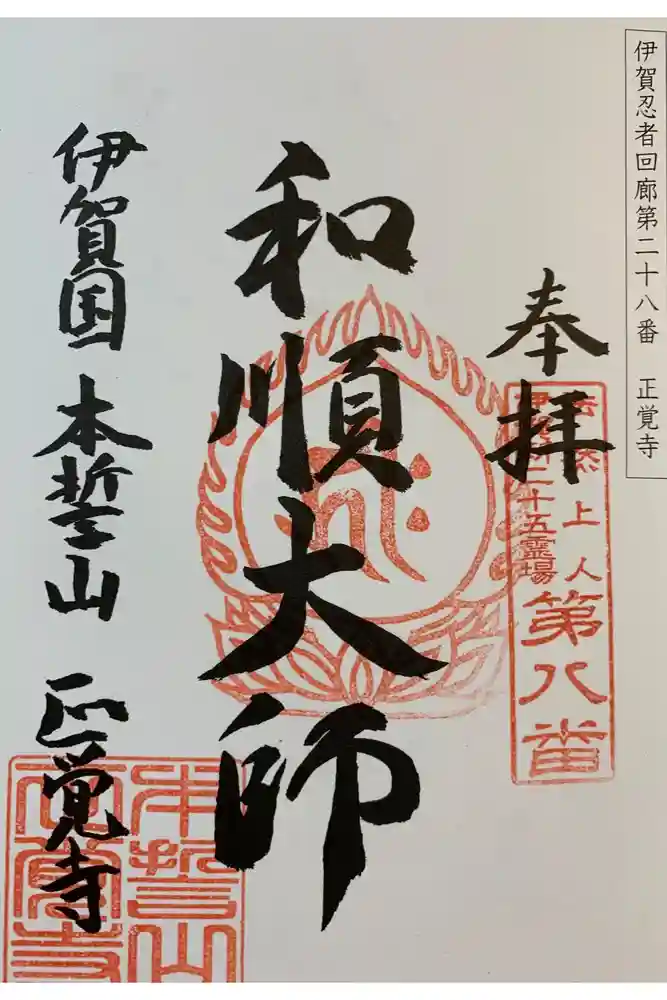 伊賀忍者回廊第二十八番 正覚寺
奉拝
上人
二十五霊場
第八番
和順大師
伊賀国 本誓山 正覚寺
本誓山
正覚寺